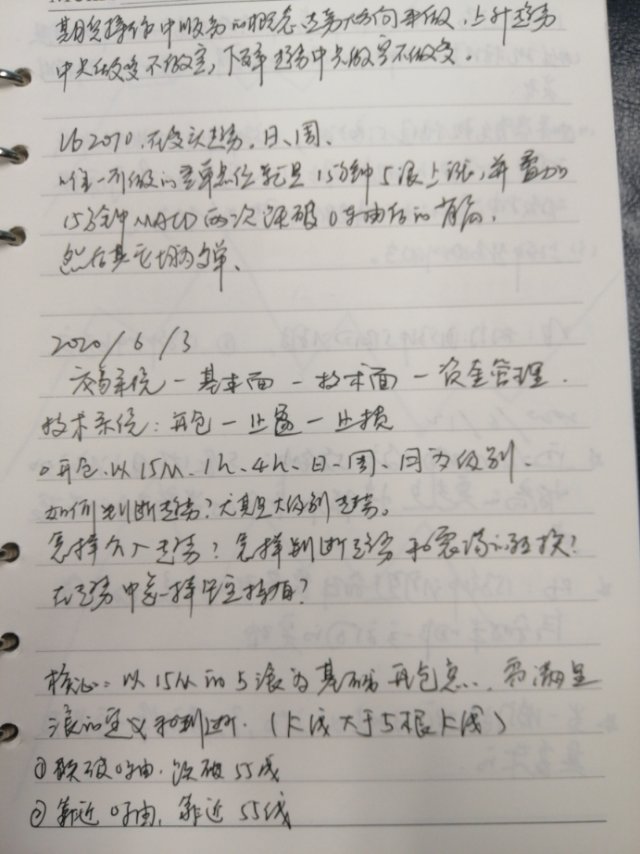 其目 操作中顺势的概念 趋势方向来做，上升趋势
中只做多不做空，下降趋势中只做空不做多。
Lb2010，在多头趋势，日、周、
唯一可做的多单点位就是15分钟5浪上涨，并叠加
15分钟MACD两次 破0轴后的背离，
然后其它均为单、
2020/6/3
交易系统－基本面－技术面－资金管理．
技术系统：开仓－止盈－止损
开仓、以15M、1h、4h、日、周、月为级别、
如何判断趋势？尤其是大级别趋势。
怎样介入趋势？怎样判断趋势和震荡的转换？
在趋势中怎样 ？
核心：以15M的5浪为基础开仓点、需满足
浪的定义和判断．（K线大于5根K线）
①跌破0轴．跌破55线
②靠近0轴，靠近55线